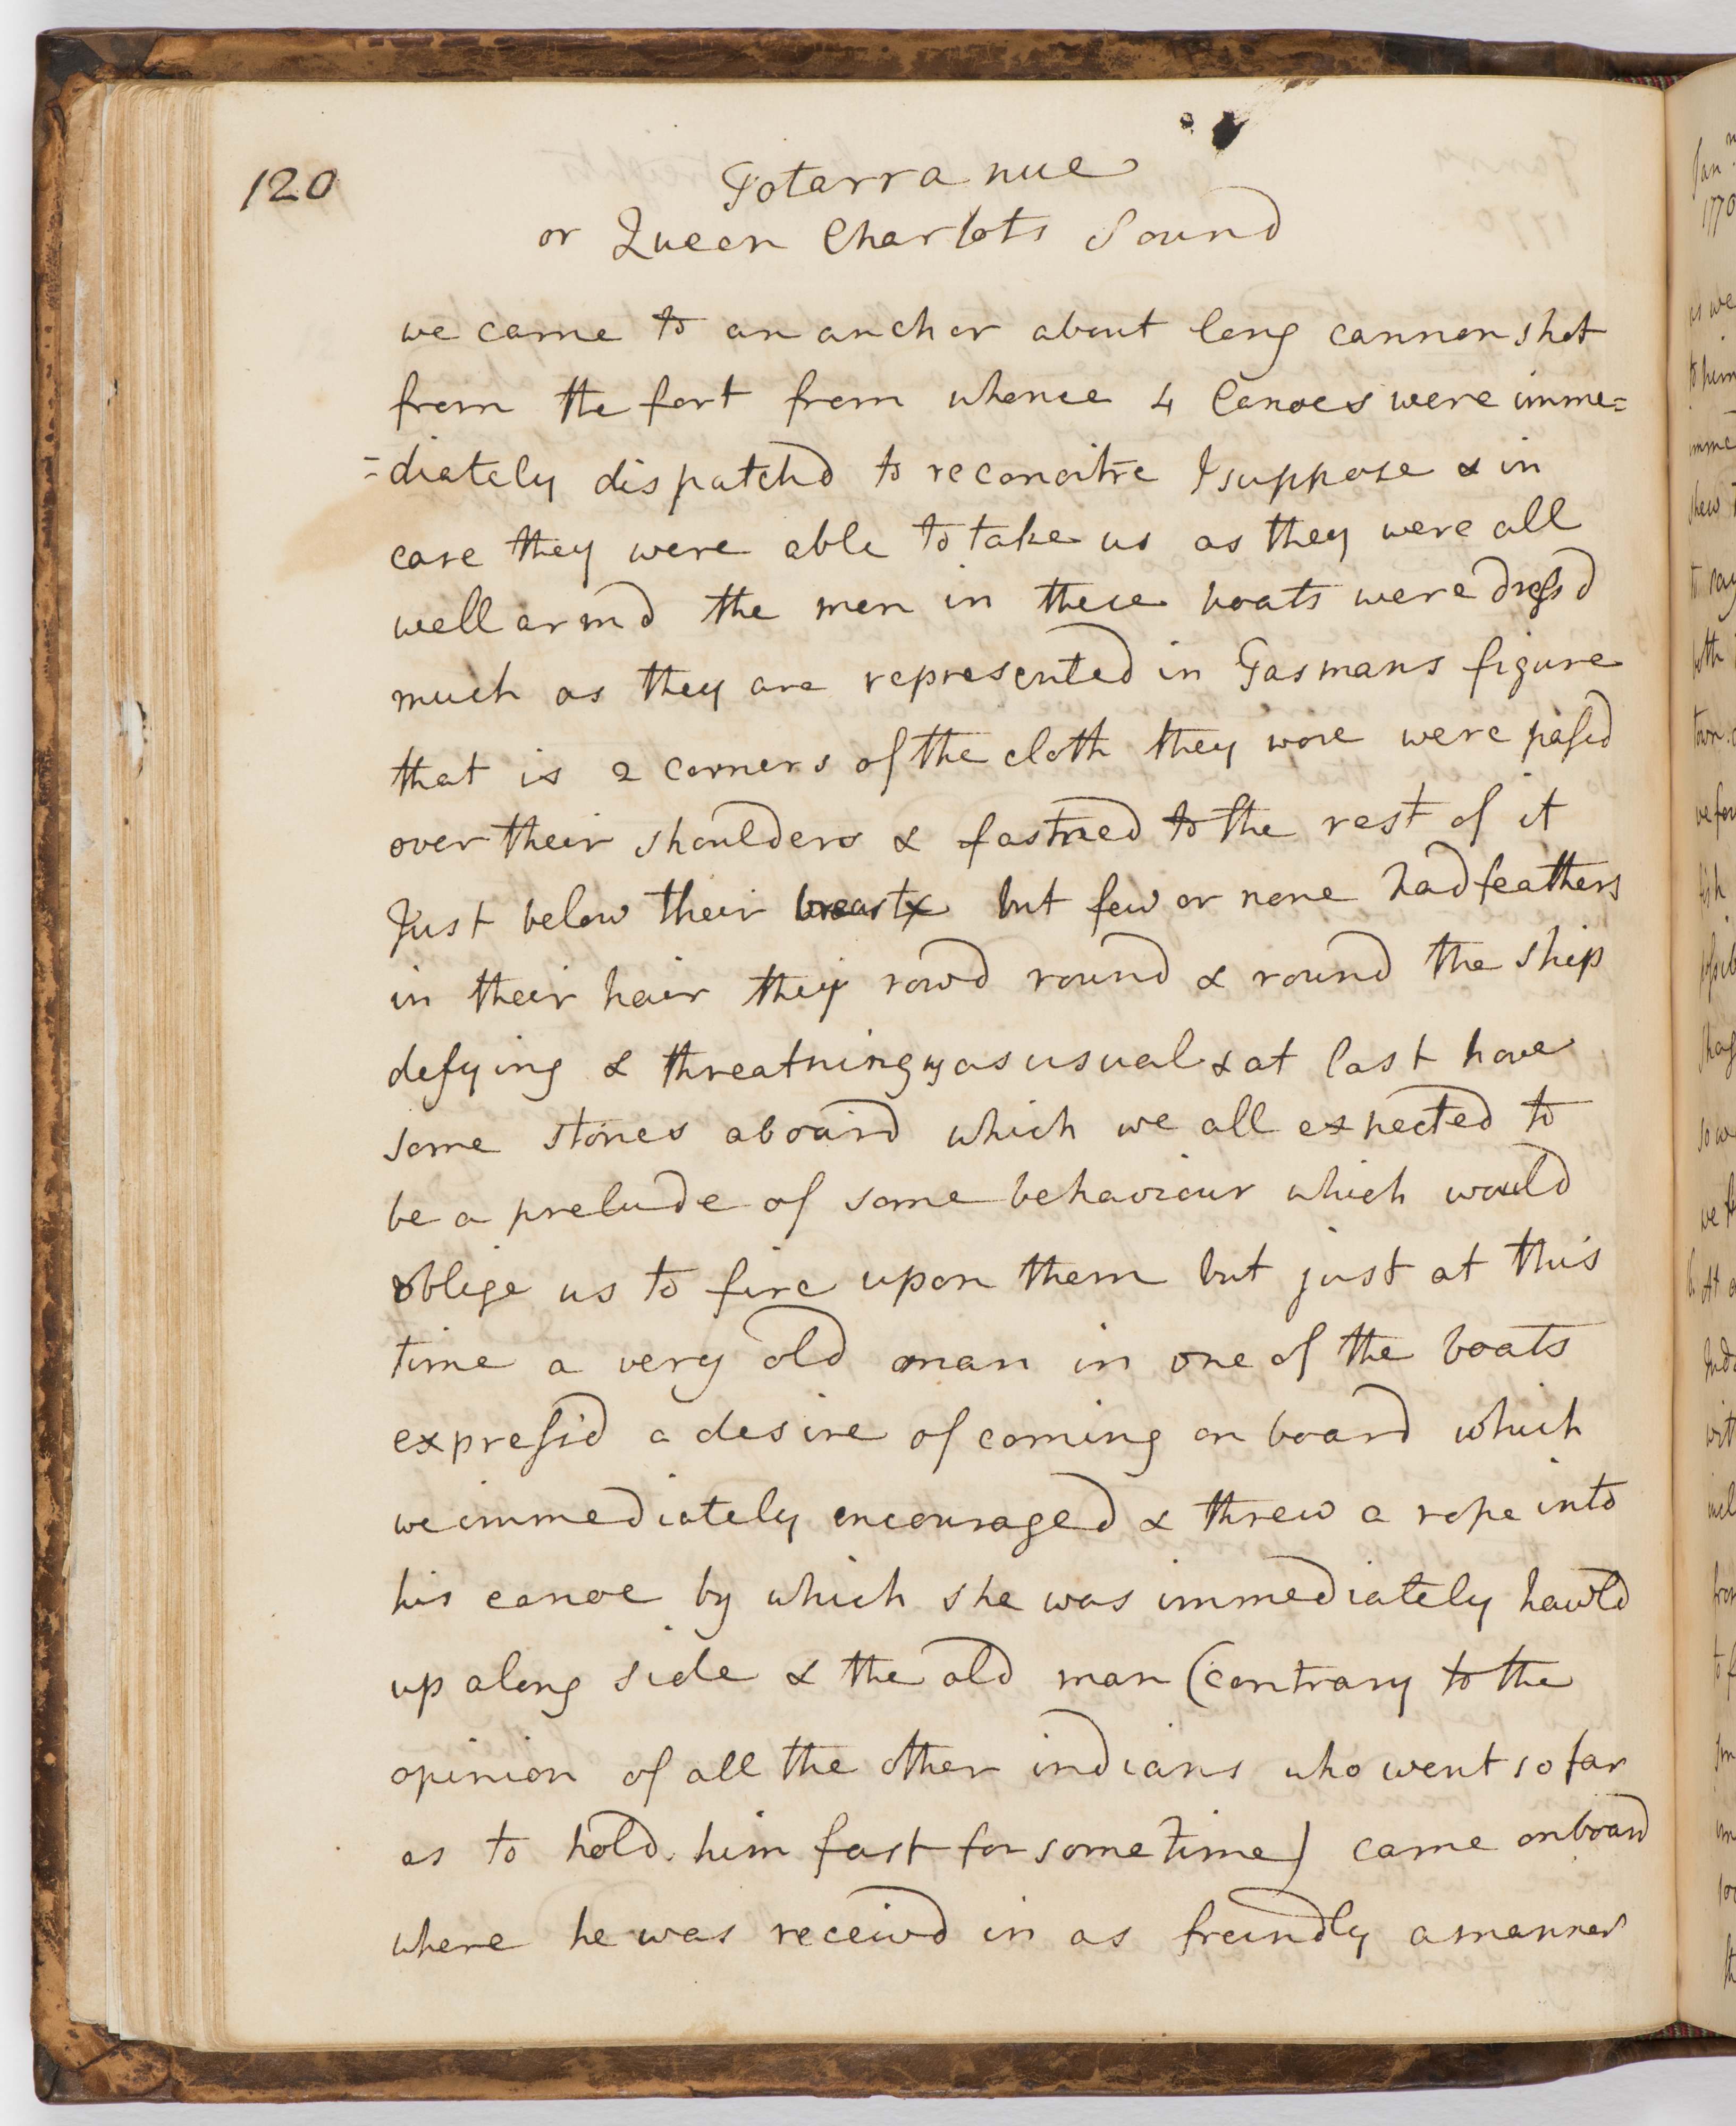 120
Totarra nue
or Queen Charlots Sound
we came to an anchor about long cannon shot
from the fort from whence 4 Canoes were imme=
=diately dispatchd to reconoitre I suppose & in
case they were able to take us as they were all
well armd the men in these boats were dressd
much as they are represented in Tasmans figure
that is 2 corners of the cloth they wore were passd
over their shoulders & fastned to the rest of it
Just below their breasts but few or none had feathers
in their hair they rowd round & round the ship
defying & threatning us as usual & at last hove
some stones aboard which we all expected to
be a prelude of some behaviour which would
oblige us to fire upon them but just at this
time a very old man in one of the boats
expressd a desire of coming on board which
we immediately encouraged & threw a rope into
his canoe by which she was immediately hawld
up along side & the old man (contrary to the
opinion of all the other indians who went so far
as to hold him fast for some time) came on board
where he was receivd in as freindly a manner